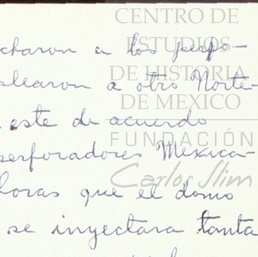 CENTRO DE
ESTUDIOS
charon a los perfo-
plearon a otro Norte-
DE HISTORIA
DE MEXICO
este de acuerdo
FUNDACIÓN
perforadores Mexica-
Carlos Slim
horas que el domo
se inyectara tanta